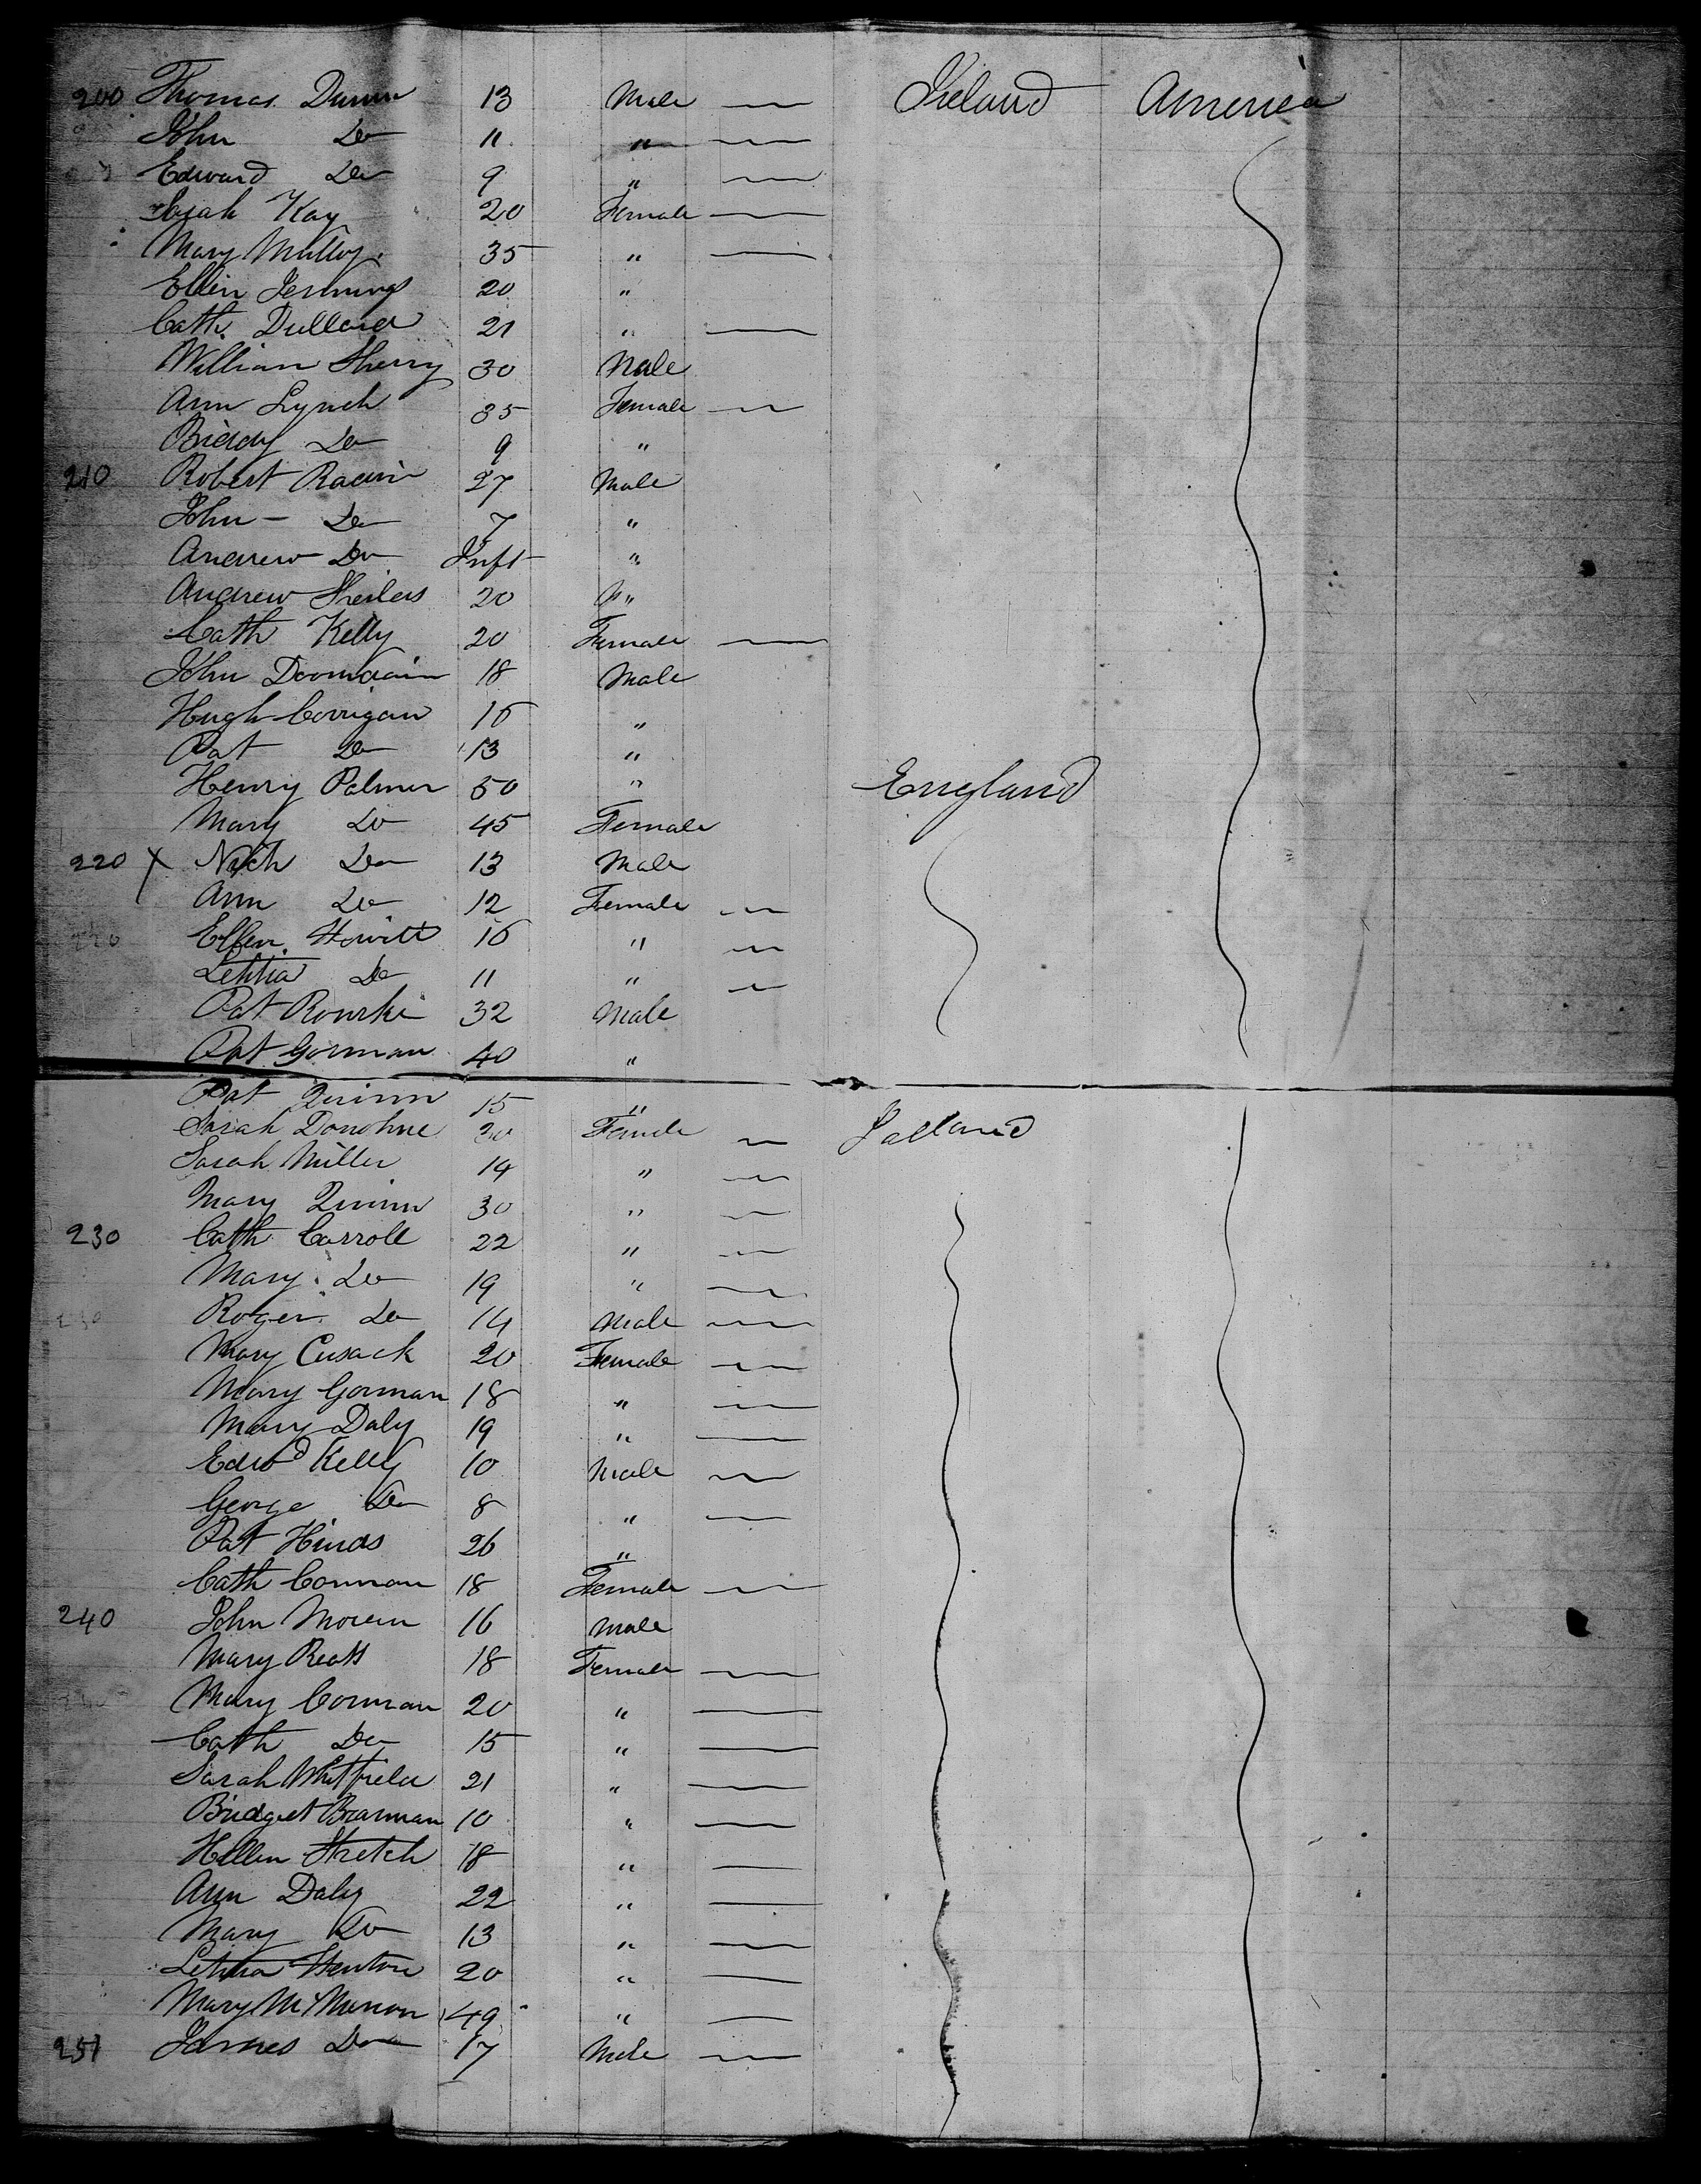 200 Thomas Dunn 13 Male — Ireland America
John Do 11 " —
Edward Do 9 " —
Sarah Kay 20 Female —
Mary Mulloy 35 " —
Ellen Jennings 20 "
Cath. Dullard 21 " —
William Sherry 30 Male
Ann Lynch 35 Female —
Biddy Do 9 "
210 Robert 27 Male
John - Do 7 "
Andrew Do Inft "
Andrew 20 "
Cath Kelly 20 Female —
John 18 Male
Hugh Corrigan 16 "
Pat Do 13 "
Henry Palmer 50 " England
Mary Do 45 Female
220 X Nich Do 13 Male
Ann Do 12 Female —
Ellen Howitt 16 " —
Letitia Do 11 " —
Pat Rourke 32 Male
Pat Gorman 40 "
Pat Quinn 15 "
Sarah Donohue 30 Female —
Sarah Miller 14 " —
Mary Quinn 30 " —
230 Cath Carroll 22 " —
Mary Do 19 " —
Roger Do 14 Male —
Mary Cusack 20 Female —
Mary Gorman 18 " —
Mary Daly 19 " —
Edwd Kelly 10 Male —
George Do 8 " —
Pat Hinds 26 "
Cath Connan 18 Female —
240 John Moren 16 Male
Mary 18 Female —
Mary Connan 20 " —
Cath Do 15 " —
Sarah Whitfield 21 " —
Bridget 10 " —
Hellen Stretch 18 " —
Ann Daly 22 " —
Mary Do 13 " —
Letitia 20 " —
Mary 49 " —
251 James Do 17 Male —